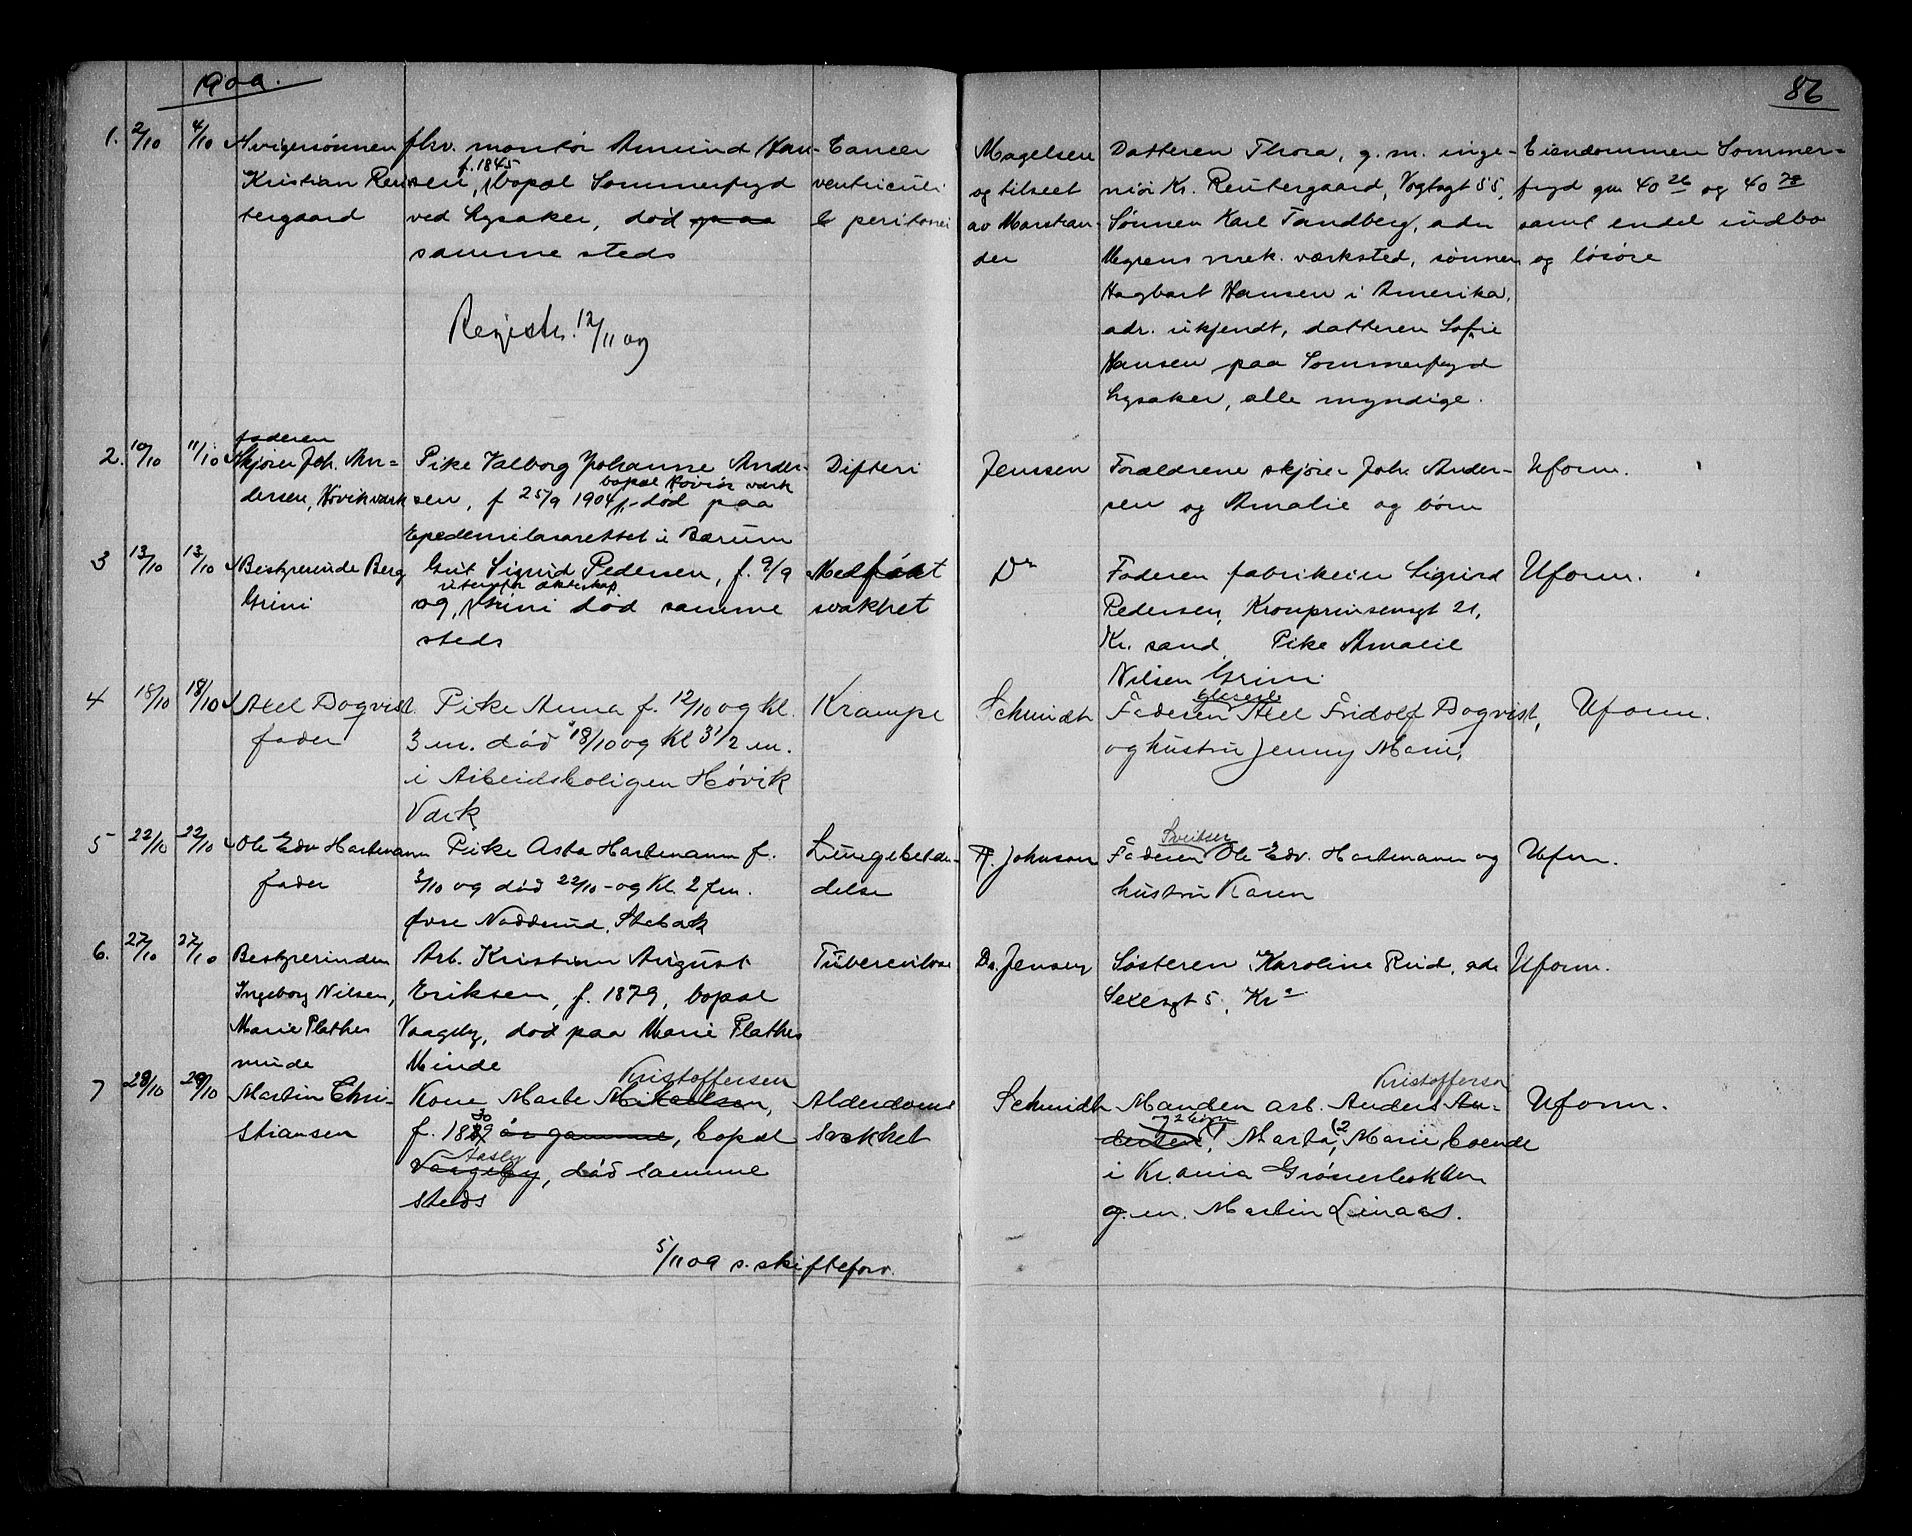 1909.
86
1. 2/10 4/10 Svigersønnen fhv. montør Amund Han- Cancer Magelsen Datteren Thora, g.m. inge- Eiendommen Sommer-
f. 1845
Kristian Reu- sen, bopæl Sommerfryd ventriculi og tilseet niør Kr. Reutergaard, Vogtsgt 55, fryd gnr 40 26 og 40 78
tergaard ved Lysaker, død paa & peritonei av Marstran- Sønnen Karl Tandberg, adr samt endel indbo
samme steds der Myrens mek. værksted, sønnen og løsøre
Hagbart Hansen i Amerika,
Registr. 12/11 09 adr. ukjendt, datteren Sofie
Hansen paa Sommerfryd
Lysaker, alle myndige.
faderen
2. 10/10 11/10 Skjører Joh. An- Pike Valborg Johanne Ander- Difteri Jenssen Forældrene skjører Joh. Ander- Uform.
bopæl Høvik værk
dersen, Høvik værk sen, f 25/9 1904, død paa sen og Amalie og børn
Epedemilasarettet i Bærum
3 13/10 13/10 Bestyrerinde Berg Gut Sigurd Pedersen, f. 9/9 Medfødt Do Faderen fabrikeier Sigurd Uform.
utenfor ækteskap
Grini 09, Grini død samme svakhet Pedersen, Kronprinsensgt 21,
steds Kr. sand. Pike Amalie
Nilsen Grini.
4 18/10 18/10 Axel Dogvist Pike Anna f. 12/10 09 Kl. Krampe Schmidt Faderen Axel Fridolf Dogvist, Uform.
fader 3 em. død 18/10 09 Kl 3 1/2 em. og hustru Jenny Marie,
i Arbeidsboligen Høvik
Værk
Sveitser
5 22/10 22/10 Ole Edv Hartmann Pike Asta Hartmann f. Lungebetæn- Johnson Faderen Ole Edv. Hartmann og Uform.
fader 3/10 og død 22/10-09 Kl. 2 fm. delse hustru Karen
øvre Nadderud, Stabæk
6. 27/10 27/10 Bestyrerinden Arb. Kristian August Tuberculose Dr. Jensen Søsteren Karoline Rud, adr Uform.
Ingeborg Nilsen, Eriksen, f. 1879, bopæl Sexesgt 5, Kra
Marie Plathes Vaagsby, død paa Marie Plathes
minde Minde
Kristoffersen Kristoffersen
7 28/10 29/10 Martin Chri- Kone Marte Mikaelsen, Alderdoms Schmidt Manden arb. Anders An- Uform.
30 og 2 børn
stiansen f. 1829 år gamme, bopæl svakhet dersen, 1, Marta, 2, Marie boende
Aasby
Vaagsby, død samme i Kr.ania Grønerløkken
steds g.m. Martin Linaas.
5/11 09 s. skifteforv.